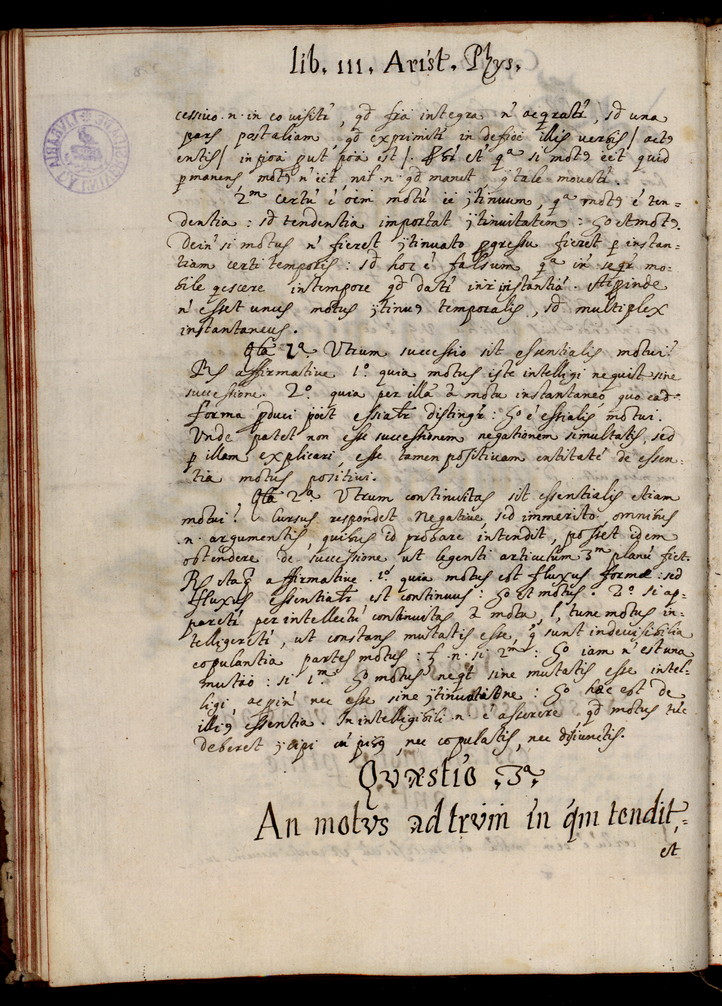 lib. III. Arist. Phys.
cessivo .n. in eo visitr, qd fra integra n' acqratr, sd una
pars post aliam qd exprimitr in defioē illis verbis / act9
entis / in poā put poā est /. est qa si mot9 eēt quid
pmanens mot9 n' eēt nāt .n. qd manet tale movetr.
2m certū ē oēm motū eē ɔtinuum, qa mot9 ē ten-
dentia : sd tendentia importat ɔtinuitatem : go est mot9.
Dein' si motus n' fieret ɔtinuato pgressu fieret p instan=
tiam certi temporis : sd hoc ē falsum qa in seqr mo-
bile qescere in tempore qd datr inr instantiā. Ac pinde
n' esset unus motus ɔtinu9 temporalis, sd multiplex
instantaneus.
Qta 1a. Utrum successio sit essentialis motui?
Rs affirmative 1o. quia motus iste intelligi nequit sine
successione. 2o. quia per illā ā motu instantaneo quo ead.
forma pduci pōit essiatr distingr : go ē essialis motui.
Unde patet non esse successionem negationem simultatis, sed
p illam explicari, esse tamen positivam entitatē de essen-
tia motus positivi.
Qta 2a. Utrum continuitas sit essentialis etiam
motui? Cursus respondet Negative, sed immerito, omnibus
.n. argumentis quibus id probare intendit, posset idem
obtendere de successione ut legenti articulum 3m planū fiet.
Rs itaq affirmative .1o. quia motus est fluxus formæ : sed
fluxus essentiatr est continuus : go et motus. 2o. si ap-
paretr per intellectū continuitas ā motu l, tunc motus in-
telligeretr, ut constans mutatis esse, q sunt indivisibilia
copulantia partes motus : .n. si 2m : go iam n' est una
mutāo : si 1m go motus neqt sine mutatis esse intel-
ligi, ac pin' nec esse sine ɔtinuatione : go hæc est de
illi9 essentia. Inintelligibili .n. ē asserere qd motus tūc
deberet ɔcipi cū pib9, nec copulatis, nec disiunctis.
Qvæstio .3a.
An motvs ad trvm in qm tendit,=
est